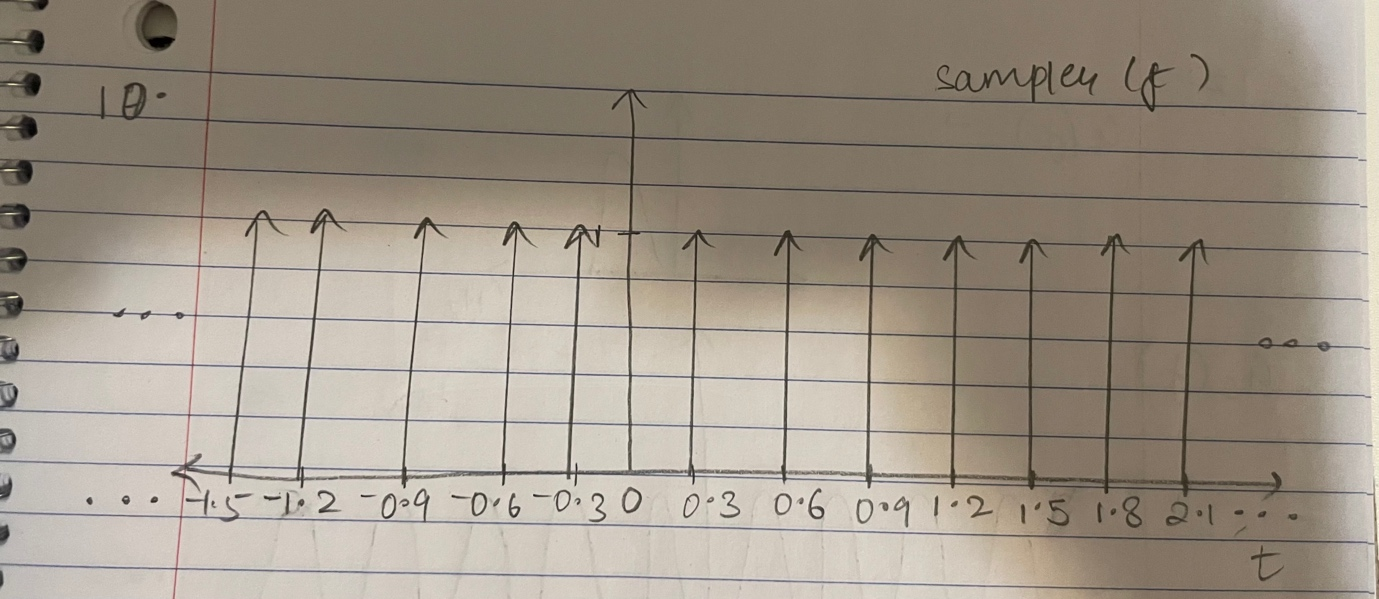 sampler (t)
10.
1
... -1.5 -1.2 -0.9 -0.6 -0.3 0 0.3 0.6 0.9 1.2 1.5 1.8 2.1 ...
t